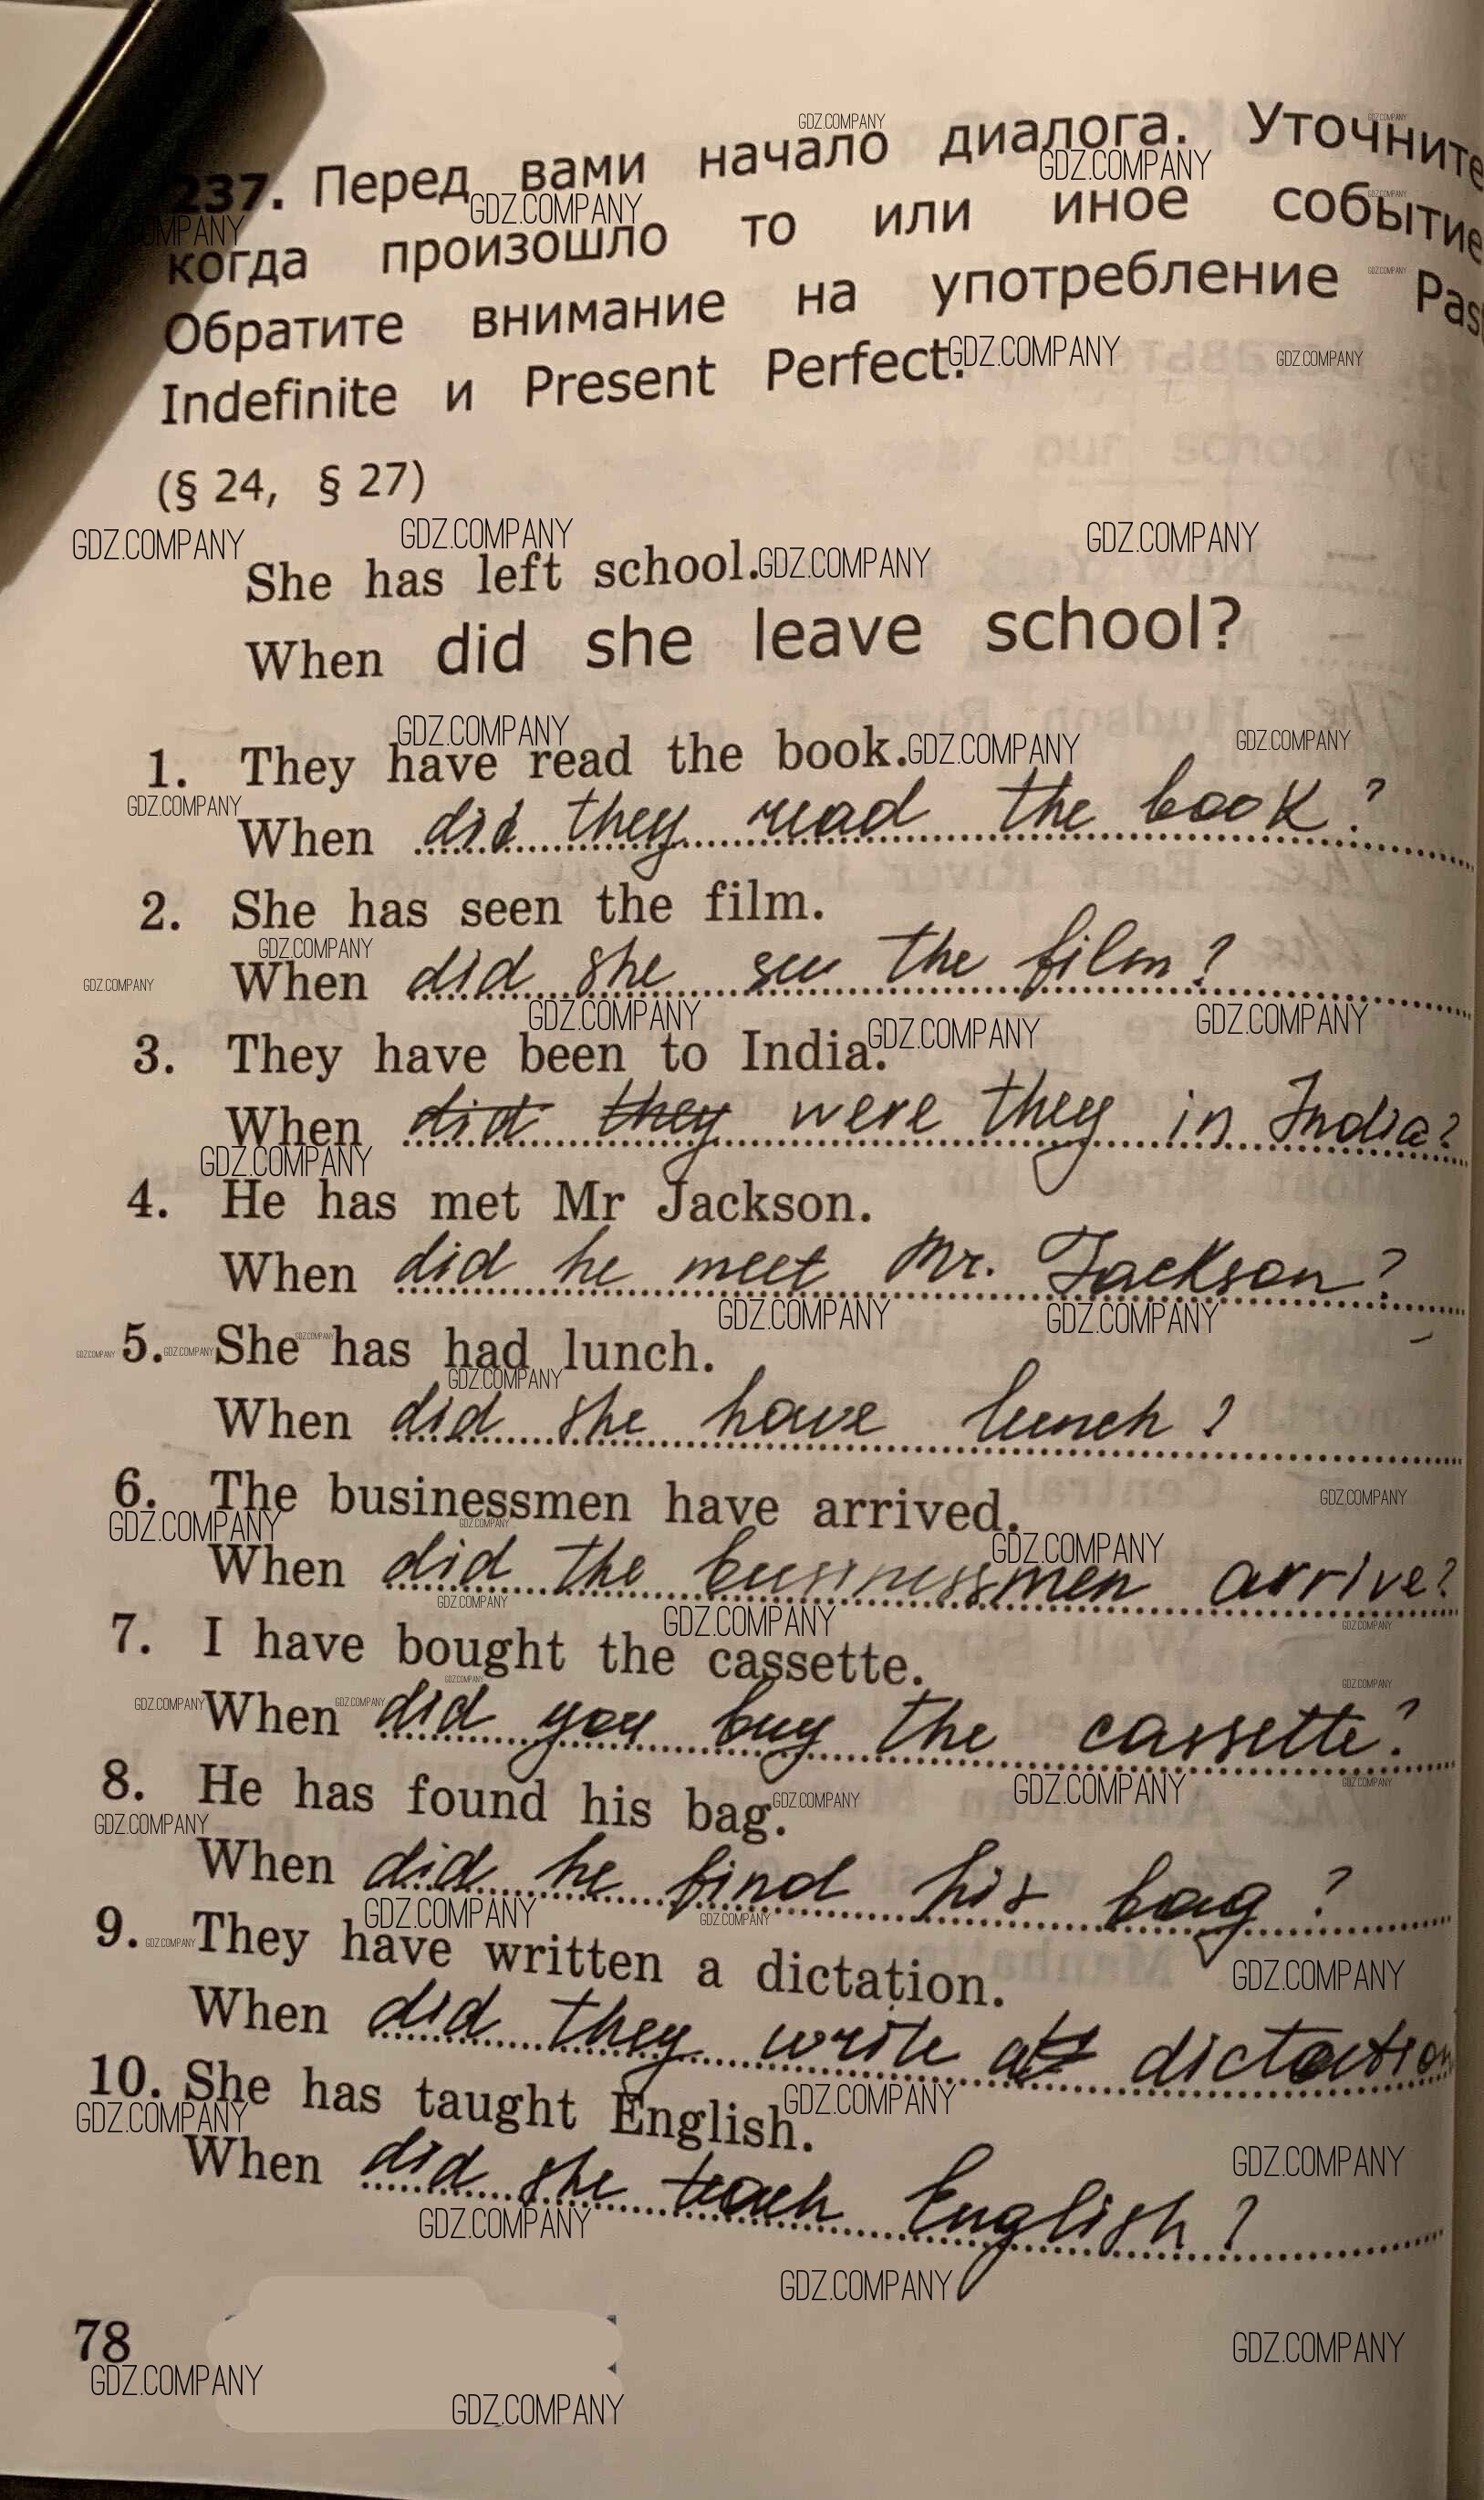 237. Перед вами начало диалога. Уточните
когда произошло то или иное событие
Обратите внимание на употребление Past
Indefinite и Present Perfect.
(§ 24, § 27)
She has left school.
When did she leave school?
1. They have read the book.
When did they read the book?
2. She has seen the film.
When did she see the film?
3. They have been to India.
When did they were they in India?
4. He has met Mr Jackson.
When did he meet Mr. Jackson?
5. She has had lunch.
When did she have lunch?
6. The businessmen have arrived.
When did the businessmen arrive?
7. I have bought the cassette.
When did you buy the cassette?
8. He has found his bag.
When did he find his bag?
9. They have written a dictation.
When did they write a dictation
10. She has taught English.
When did she teach English?
78
GDZ.COMPANY